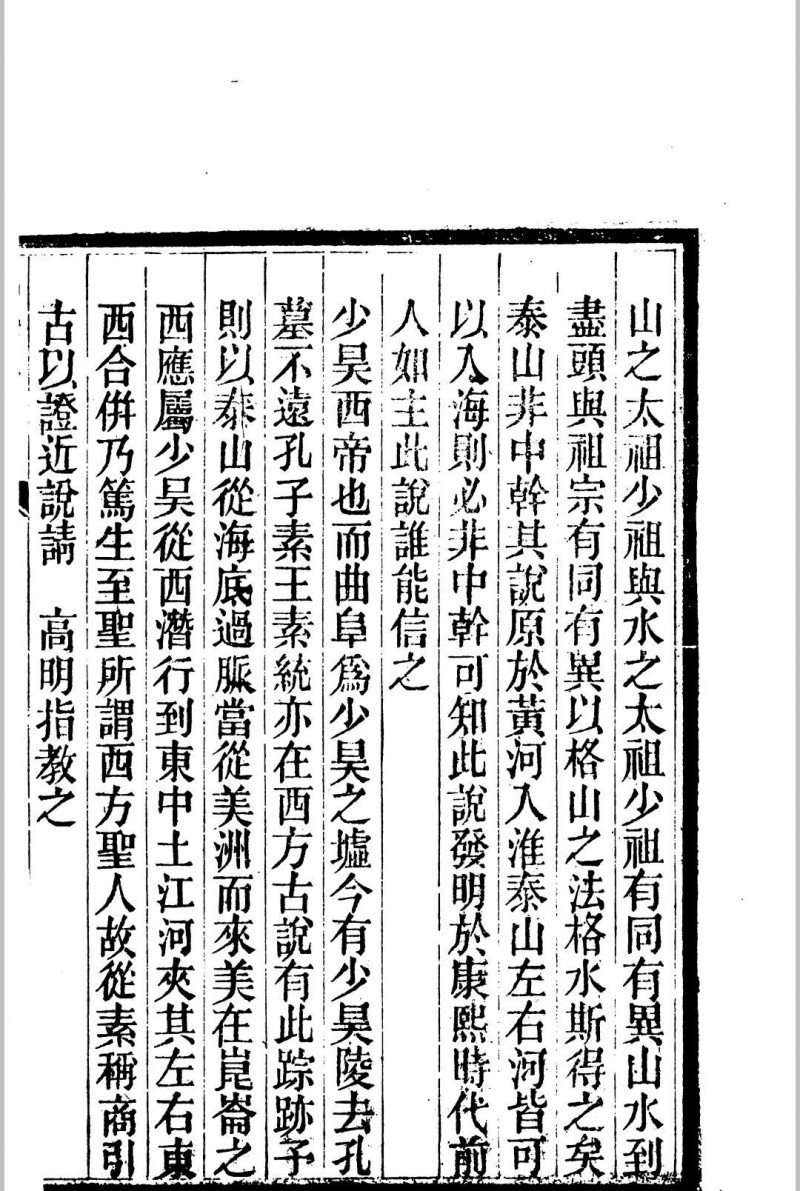 山之太祖少祖與水之太祖少祖有同有異山水到
盡頭與祖宗有同有異以格山之法格水斯得之矣
泰山非中幹其說原於黃河入淮泰山左右河皆可
以入海則必非中幹可知此說發明於康熙時代前
人如主此說誰能信之
少昊西帝也而曲阜爲少昊之墟今有少昊陵去孔
墓不遠孔子素王素統亦在西方古說有此踪跡予
則以泰山從海底過脈當從美洲而來美在崑崙之
西應屬少吴從西潛行到東中土江河夾其左右東
西合倂乃篤生至聖所謂西方聖人故從素稱商引
古以證近說請　高明指教之